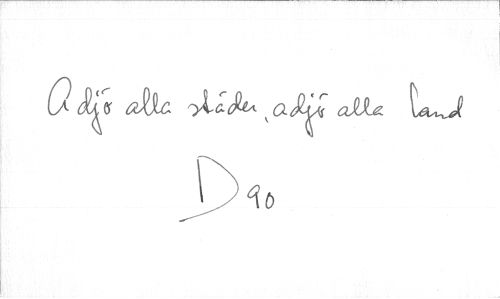 Adjö alla städer, adjö alla land
D 90